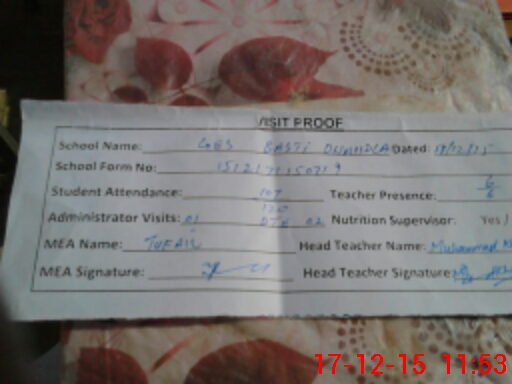 VISIT PROOF
School Name: BASTI Dated: 17/12/15
School Form No:
Student Attendance: 107 Teacher Presence: 6/6
Administrator Visits: 01 02 Nutrition Supervisor: Yes/
MEA Name: TUFAIL Head Teacher Name: Muhammad
MEA Signature: Head Teacher Signature:
17-12-15 11:53